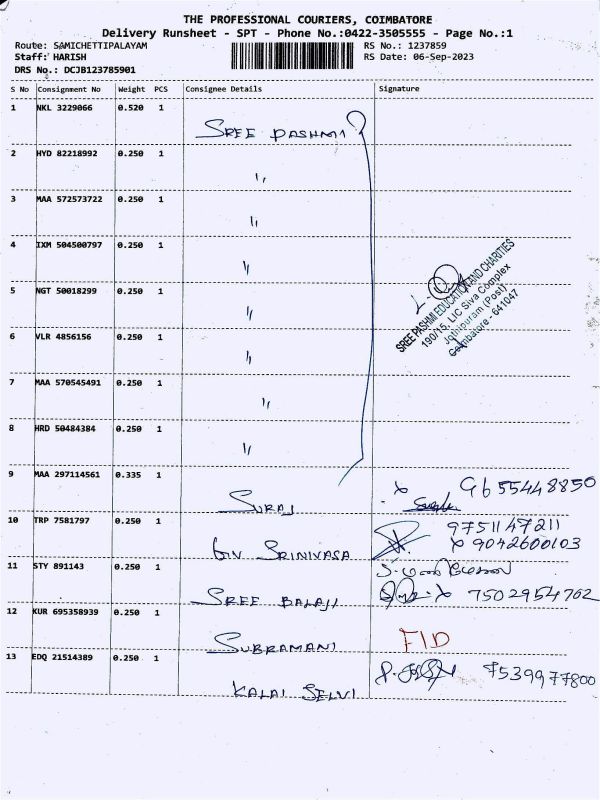 THE PROFESSIONAL COURIERS, COIMBATORE
Delivery Runsheet - SPT - Phone No.:0422-3505555 - Page No.:1
Route: SAMICHETTIPALAYAM RS No.: 1237859
Staff: HARISH RS Date: 06-Sep-2023
DRS No.: DCJB123785901
S No Consignment No Weight PCS Consignee Details Signature
1 NKL 3229066 0.520 1
SREE PASHMI
2 HYD 82218992 0.250 1
"
3 MAA 572573722 0.250 1
"
4 IXM 504500797 0.250 1
"
SREE PASHMI EDUCATION AND CHARITIES
190/15, LIC Siva Complex
Jothipuram (Post)
Coimbatore - 641047
5 NGT 50018299 0.250 1
"
6 VLR 4856156 0.250 1
"
7 MAA 570545491 0.250 1
"
8 HRD 50484384 0.250 1
"
9 MAA 297114561 0.335 1
SURAJ 9655448850
10 TRP 7581797 0.250 1
9751147211
GV SRINIVASA 9042600103
11 STY 891143 0.250 1
SREE BALAJI 7502954702
12 KUR 695358939 0.250 1
SUBRAMANI FID
13 EDQ 21514389 0.250 1
KALAI SELVI 7539977800